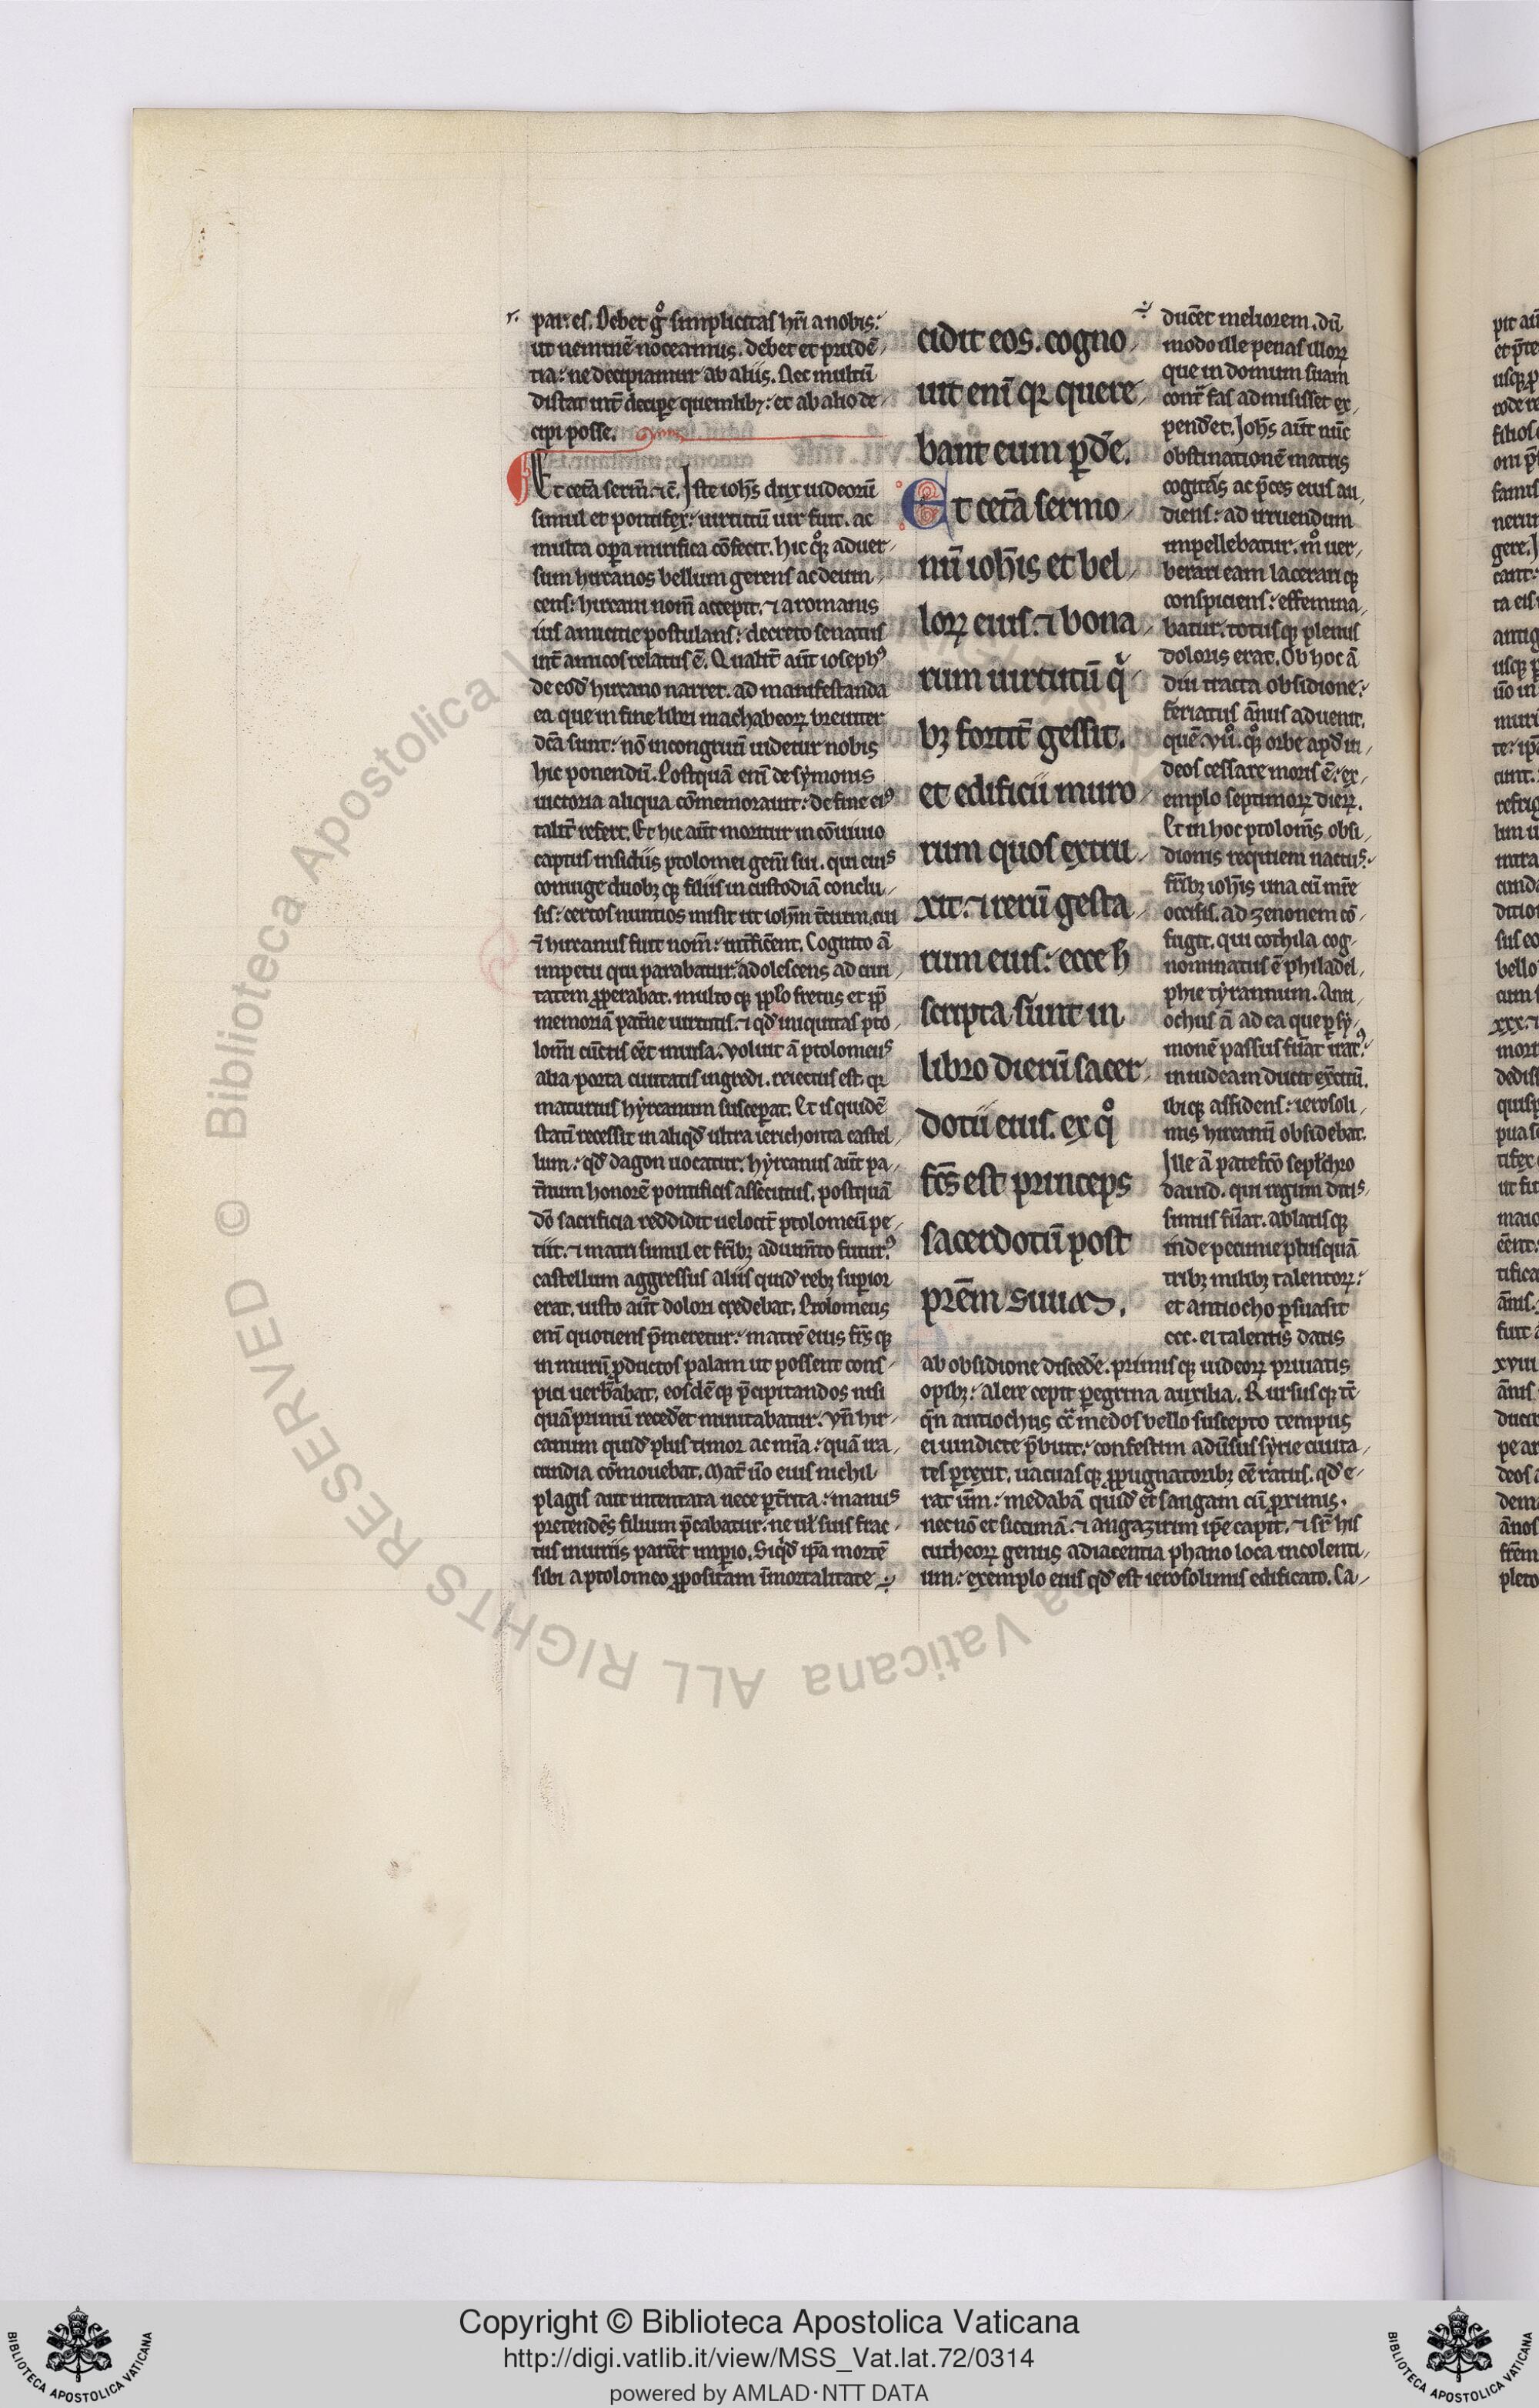 r. par.es. Debet gͦ simplicitas hr̄i a nobis:
ut neminē noceamus. debet et prudē
tia: ne decipiamur ab aliis. Nec multū
distat ut̄ decipe quemlibꝫ: et ab alio de
cipi posse.
Et cet̄a serm̄. ⁊c̄. Iste ioh̄s dux iudeorū
simul et pontifex: uirtutū uir fuit. ac
multa oꝑa mirifica cōfecit. hic qͦꝫ aduer
sum hircanos bellum gerens ac deuin
cens: hircani nom̄ accepit. ⁊ a romanis
ius amicitie postulans: decreto senatus
int̄ amicos relatus ē. Qualit̄ aūt ioseph᾿
de eod̄ hircano narret. ad manifestanda
ea que in fine libri machabeoꝝ breuiter
dc̄a sunt: nō incongruū uidetur nobis
hic ponendū. Postquā enī de symonis
uictoria aliqua cōmemorauit: de fine ei᾿
talit̄ refert. Et hic aūt moritur in cōuiuio
captus insidiis ptolomei gen̄i sui. qui eius
coniuge duobꝫ qꝫ filiis in custodiā conclu
sis: certos nuntios misit ut ioh̄m t̄cium. cui
⁊ hircanus fuit nom̄: int̄ficēnt. Cognito ā
impetu qui parabatur: adolescens ad ciui
tatem ꝓperabat. multo qꝫ pp̄lo fretus et ꝓp̄
memoriā pat̄ne uirtutis. ⁊ qd̄ iniquitas pto
lom̄i cūctis eēt inuisa. Voluit ā ptolomeus
alia porta ciuitatis ingredi. reiectus est. qꝫ
maturius hyrcanum susceꝑat. Et is quidē
statī recessit in aliqd̄ ultra ierichonta castel
lum: qd̄ dagon uocatur. hyrcanus aūt pa
t̄num honorē pontificis assecutus. postquā
dō sacrificia reddidit uelocit̄ ptolomeū pe
tiit. ⁊ matri simul et fr̄ibꝫ adium̄to futur᾿
castellum aggressus aliis quid̄ rebꝫ suꝑior
erat. iusto aūt dolori cedebat. Ptolomeus
enī quotiens p̄meretur: matrē eius fr̄s qꝫ
in murū ꝓductos palam ut possent cons
pici uerb̄abat. eosdē qꝫ p̄cipitandos nisi
quāprimū reced̄et minitabatur. Vn̄ hir
canum quid̄ plus timor ac mīa: quā ira
cundia cōmouebat. Mat̄ ūo eius nichil
plagis aut intentata nece ꝑt̄rita: manus
pretendēs filium p̄cabatur: ne ul̄ suis frac
tus iniuriis parēt impio. Siqd̄ ip̄a mortē
sibi a ptolomeo ꝓpositam īmortalitate
cidit eos. cogno
uit enī qꝛ quere
bant eum ꝑdē.
Et cet̄a sermo
nū ioh̄is et bel
loꝝ eius. ⁊ bona
rum uirtutū qͥ
bꝫ fortit̄ gessit.
et edificii muro
rum quos extru
xit. ⁊ rerū gesta
rum eius: ecce h̄
scripta sunt in
libro dierū sacer
dotii eius. ex qͦ
fcs̄ est princeps
sacerdotū post
prēm suum.
ducēt meliorem. dū
modo ille penas illoꝝ
que in domum suam
cont̄ fas admisisset ex
pend̄et. Ioh̄s aūt nūc
obstinationē matris
cogitās ac p̄ces eius au
diens: ad irruendum
impellebatur. mͦ uer
berari eam lacerari qꝫ
conspiciens: effemina
batur. totus qꝫ plenus
doloris erat. Ob hoc ā
diu tracta obsidione:
feriatus ānus aduenit.
quē .vii. qͦꝫ orbe apd̄ iu
deos cessare moris ē: ex
emplo septimoꝝ dieꝝ.
Et in hoc ptolom̄s obsi
dionis requiem nactus:
fr̄ibꝫ ioh̄is una cū mr̄e
occisis. ad zenonem cō
fugit. qui cothila cog
nominatus ē philadel
phie tyrannum. Anti
ochus ā ad ea que ꝑ sy
monē passus fūat irat᾿:
in iudeam ducit ex̄citū.
ibi qꝫ assidens: ierosoli
mis hircanū obsidebat.
Ille ā patefcō seplc̄hro
dauid. qui regum ditis
simus fūat. ablatis qꝫ
inde pecunie plusquā
tribꝫ milibꝫ talentoꝝ:
et antiocho ꝑsuasit
ccc. ei talentis datis
ab obsidione disced̄e. primis qꝫ iudeoꝝ priuatis
opibꝫ: alere cepit ꝑegrina auxilia. Rursus qꝫ tē
qn̄ antiochus cc̄ medos bello suscepto tempus
ei uindicte p̄buit: confestim adūsus syrie ciuita
tes ꝑrexit. uacuas qꝫ ꝓpugnatoribꝫ eē ratus. qd̄ e
rat uīm: medabā quid̄ et sangam cū ꝓximis.
necnō et siccimā. ⁊ angazirim ip̄e capit. ⁊ sr̄ his
cutheoꝝ genus adiacentia phano loca incolenti
um: exemplo eius qd̄ est ierosolimis edificato. Sa
Copyright © Biblioteca Apostolica Vaticana
http://digi.vatlib.it/view/MSS_Vat.lat.72/0314
powered by AMLAD·NTT DATA